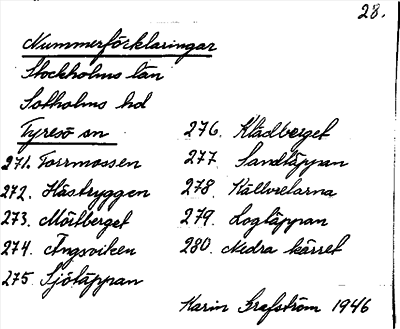 28.
Nummerförklaringar
Stockholms län
Sotholms hd
Tyresö sn
271. Torrmossen
272. Hästryggen
273. Mörtberget
274. Ängsviken
275. Sjötäppan
276. Klädberget
277. Sandtäppan
278. Källvretarna
279. Logtäppan
280. Nedra kärret
Karin Grafström 1946